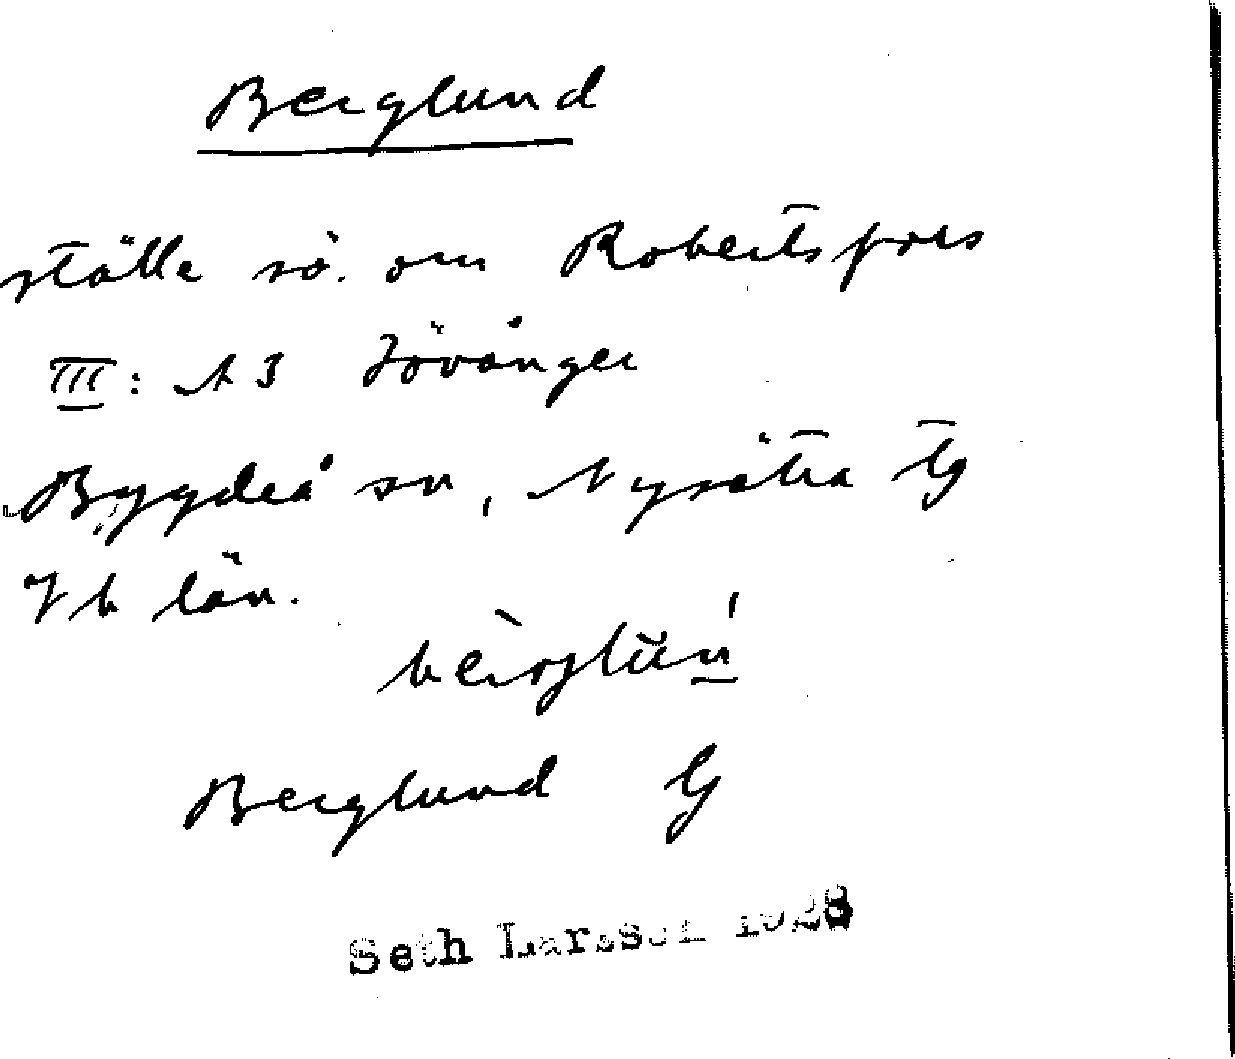 Berglund
ställe sö. om Robertsfors
III: A3 Lövånger
Bygdeå sn, Nysätra tg
Vb län.
Berglund G
Seth Larsson 1928